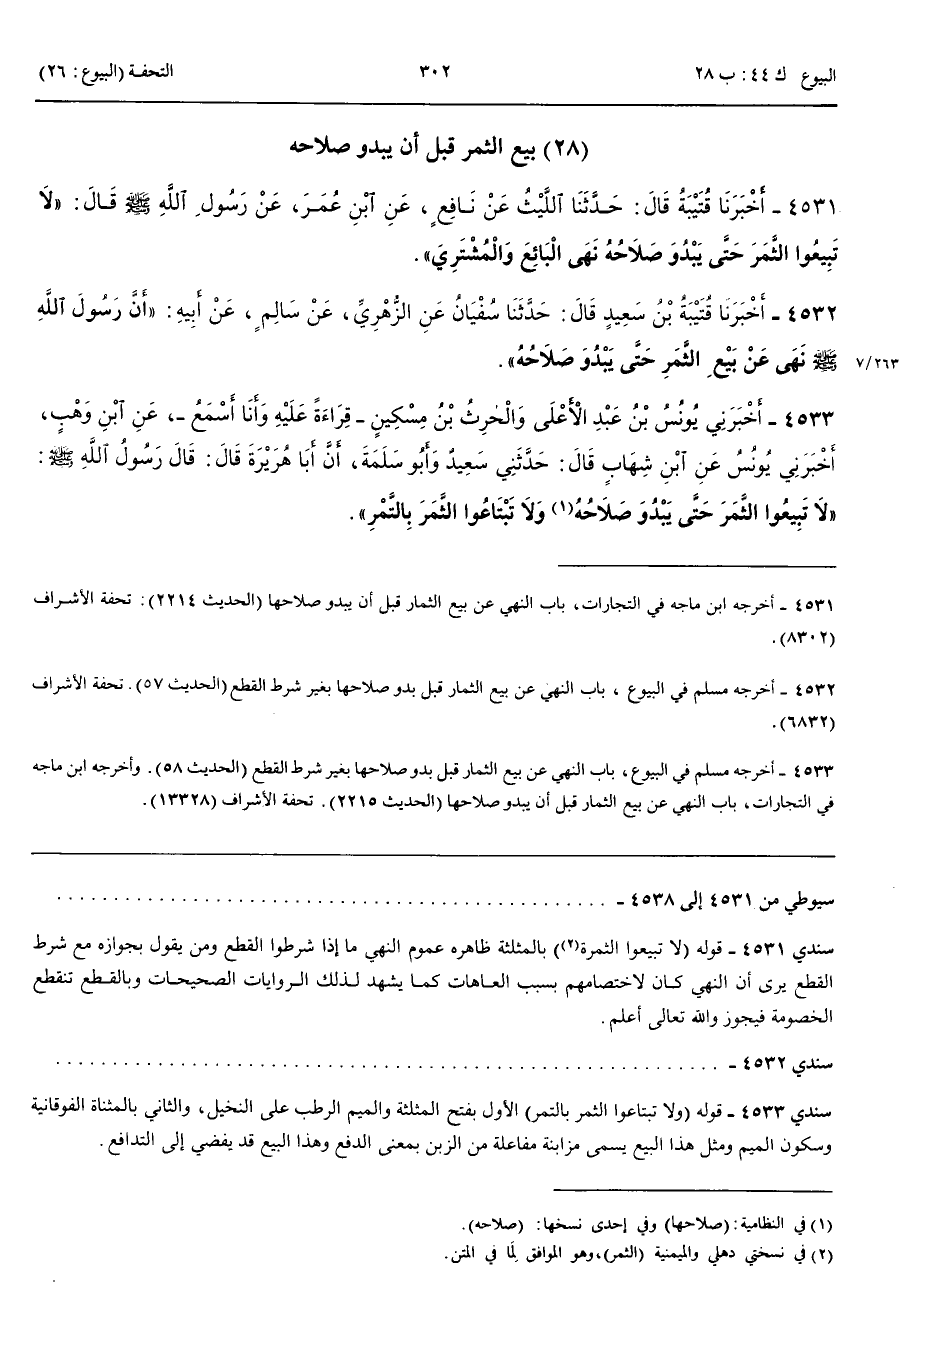 البيوع ك ٤٤: ب ٢٨
٣٠٢
التحفة (البيوع: ٢٦)
(٢٨) بيع الثمر قبل أن يبدو صلاحه
٤٥٣١ - أَخْبَرَنَا قُتَيْبَةُ قَالَ: حَدَّثَنَا ٱللَّيْثُ عَنْ نَافِعٍ، عَنِ ٱبْنِ عُمَرَ، عَنْ رَسُولِ ٱللَّهِ ﷺ قَالَ: «لَا
تَبِيعُوا الثَّمَرَ حَتَّى يَبْدُوَ صَلَاحُهُ نَهَى الْبَائِعَ وَالْمُشْتَرِيَ».
٤٥٣٢ - أَخْبَرَنَا قُتَيْبَةُ بْنُ سَعِيدٍ قَالَ: حَدَّثَنَا سُفْيَانُ عَنِ الزُّهْرِيِّ، عَنْ سَالِمٍ، عَنْ أَبِيهِ: «أَنَّ رَسُولَ ٱللَّهِ
ﷺ نَهَى عَنْ بَيْعِ الثَّمَرِ حَتَّى يَبْدُوَ صَلَاحُهُ».
٧/٢٦٣
٤٥٣٣ - أَخْبَرَنِي يُونُسُ بْنُ عَبْدِ الْأَعْلَى وَالْحٰرِثُ بْنُ مِسْكِينٍ - قِرَاءَةً عَلَيْهِ وَأَنَا أَسْمَعُ -، عَنِ ٱبْنِ وَهْبٍ،
أَخْبَرَنِي يُونُسُ عَنِ ٱبْنِ شِهَابٍ قَالَ: حَدَّثَنِي سَعِيدٌ وَأَبُو سَلَمَةَ، أَنَّ أَبَا هُرَيْرَةَ قَالَ: قَالَ رَسُولُ ٱللَّهِ ﷺ:
«لَا تَبِيعُوا الثَّمَرَ حَتَّى يَبْدُوَ صَلَاحُهُ(١) وَلَا تَبْتَاعُوا الثَّمَرَ بِالتَّمْرِ».
٤٥٣١ - أخرجه ابن ماجه في التجارات، باب النهي عن بيع الثمار قبل أن يبدو صلاحها (الحديث ٢٢١٤): تحفة الأشراف
(٨٣٠٢).
٤٥٣٢ - أخرجه مسلم في البيوع ، باب النهي عن بيع الثمار قبل بدو صلاحها بغير شرط القطع (الحديث ٥٧). تحفة الأشراف
(٦٨٣٢).
٤٥٣٣ - أخرجه مسلم في البيوع، باب النهي عن بيع الثمار قبل بدو صلاحها بغير شرط القطع (الحديث ٥٨). وأخرجه ابن ماجه
في التجارات، باب النهي عن بيع الثمار قبل أن يبدو صلاحها (الحديث ٢٢١٥). تحفة الأشراف (١٣٣٢٨).
سيوطي من ٤٥٣١ إلى ٤٥٣٨ - . . . . . . . . . . . . . . . . . . . . . . . . . . . . . .
سندي ٤٥٣١ - قوله (لا تبيعوا الثمرة(٢)) بالمثلثة ظاهره عموم النهي ما إذا شرطوا القطع ومن يقول بجوازه مع شرط
القطع يرى أن النهي كان لاختصامهم بسبب العاهات كما يشهد لذلك الروايات الصحيحات وبالقطع تنقطع
الخصومة فيجوز والله تعالى أعلم.
سندي ٤٥٣٢ - . . . . . . . . . . . . . . . . . . . . . . . . . . . . . .
سندي ٤٥٣٣ - قوله (ولا تبتاعوا الثمر بالتمر) الأول بفتح المثلثة والميم الرطب على النخيل، والثاني بالمثناة الفوقانية
وسكون الميم ومثل هذا البيع يسمى مزابنة مفاعلة من الزبن بمعنى الدفع وهذا البيع قد يفضي إلى التدافع.
(١) في النظامية: (صلاحها) وفي إحدى نسخها: (صلاحه).
(٢) في نسختي دهلي والميمنية (الثمر)، وهو الموافق لِمَا في المتن.